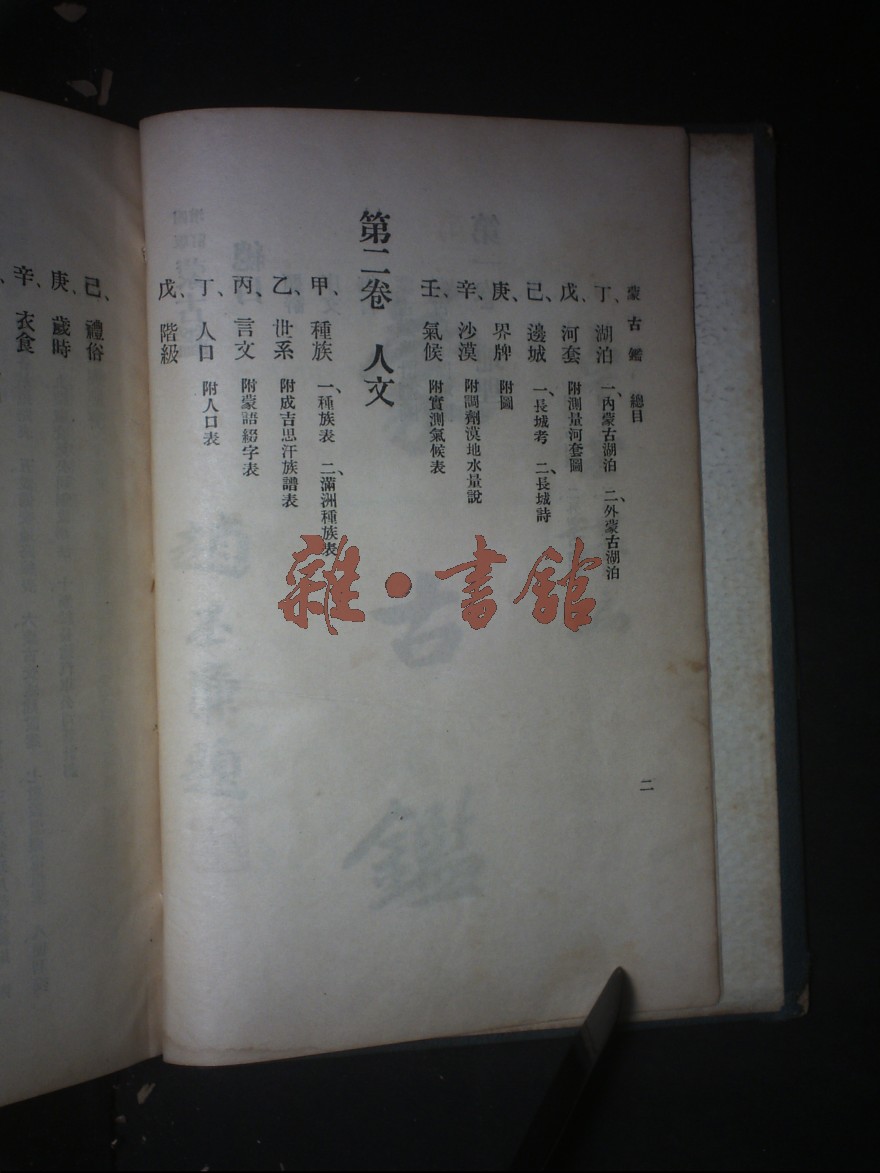 蒙古鑑 總目
丁、湖泊 一、內蒙古湖泊 二、外蒙古湖泊
戊、河套 附測量河套圖
己、邊城 一、長城考 二、長城詩
庚、界牌 附圖
辛、沙漠 附調劑漠地水量說
壬、氣候 附實測氣候表
第二卷 人文
甲、種族 一、種族表 二、滿洲種族表
乙、世系 附成吉思汗族譜表
丙、言文 附蒙語綴字表
丁、人口 附人口表
戊、階級
二
己、禮俗
庚、歲時
辛、衣食
雜·書館